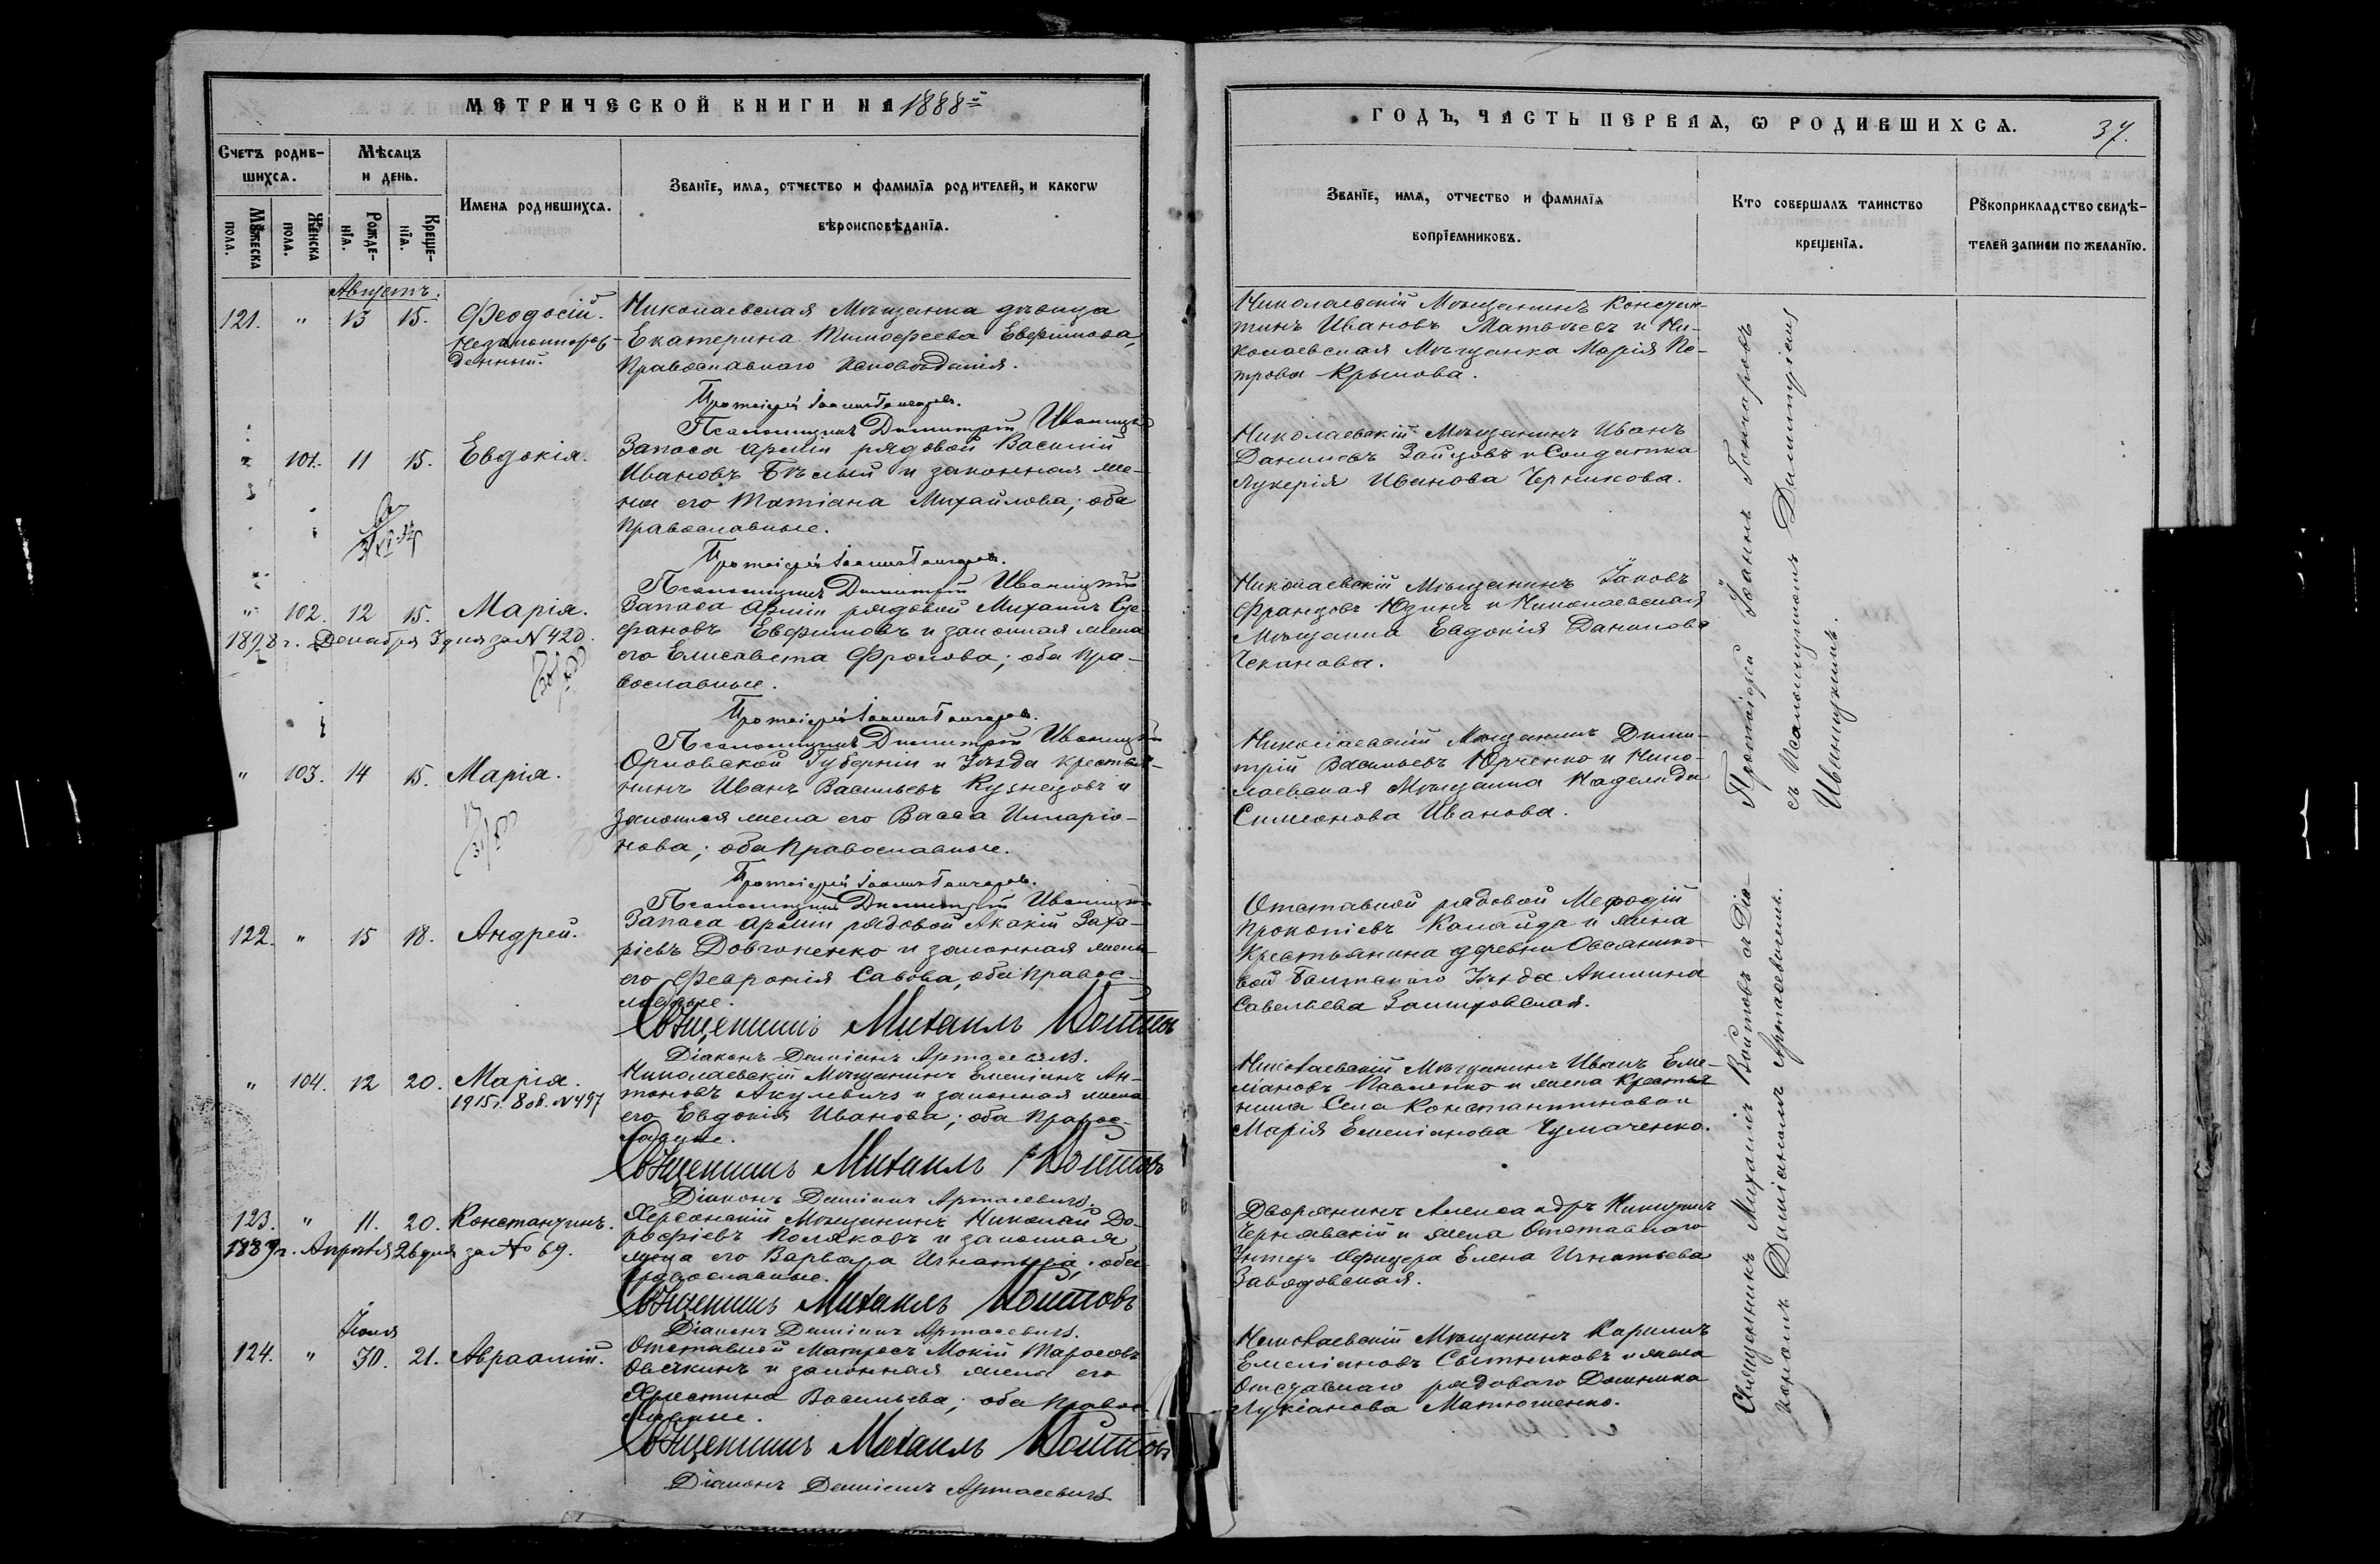 МЕТРИЧЕСКОЙ КНИГИ НА 1888й
Счетъ родив-
шихся.
Мѣсяцъ
и день.
Имена родившихся.
Званїе, имя, отчество и фамилїя родителей, и какогѡ
вѣроисповѣданїя.
Мꙋжеска
пола.
Женска
пола.
Рожде-
нїя.
Креще-
нїя.
Августъ.
121. " 13 15. Феодосій.
Незаконнорож-
денный.
Николаевская Мѣщанка дѣвица
Екатерина Тимофеева Евфимова,
Православнаго Исповѣданія.
Протоіерей Іоаннъ Гончаровъ.
Псаломщикъ Димитрій Иваницкій
" 101. 11 15. Евдокія.
Запаса Арміи рядовой Василій
Ивановъ Бѣлый и законная же-
на его Татіана Михайлова; оба
Православные.
Протоіерей Іоаннъ Гончаровъ.
Псаломщикъ Димитрій Иваницкій
" 102. 12 15. Марія.
1898 г. Декабря 3 дня за № 420.
Запаса Арміи рядовой Михаилъ Сте-
фановъ Евфимовъ и законная жена
его Елисавета Фролова; оба Пра-
вославные.
Протоіерей Іоаннъ Гончаровъ.
Псаломщикъ Димитрій Иваницкій
" 103. 14 15. Марія.
Орловской Губерніи и Уѣзда крестья-
нинъ Иванъ Васильевъ Кузнецовъ и
законная жена его Васса Илларіо-
нова; оба Православные.
Протоіерей Іоаннъ Гончаровъ.
Псаломщикъ Димитрій Иваницкій
122. " 15 18. Андрей.
Запаса Арміи рядовой Акакій Заха-
ріевъ Довгоненко и законная жена
его Феvронія Савова, оба Правос-
лавные.
Священникъ Михаилъ Войтовъ
Діаконъ Даміанъ Артасевичъ.
" 104. 12 20. Марія.
1915 г. 8 № 497
Николаевскій Мѣщанинъ Емеліанъ Ан-
тоновъ Акулевичъ и законная жена
его Евдокія Иванова; оба Правос-
лавные.
Священникъ Михаилъ Войтовъ
Діаконъ Даміанъ Артасевичъ.
123. " 11. 20. Константинъ.
1889 г. Апрѣля 26 дня за № 69.
Херсонскій Мѣщанинъ Николай До-
рофіевъ Поляковъ и законная
жена его Варвара Игнатьева; оба
Православные.
Священникъ Михаилъ Войтовъ
Діаконъ Даміанъ Артасевичъ.
Іюля
124. " 30. 21. Авраамій.
Отставной Матросъ Мокій Тарасовъ
Овечкинъ и законная жена его
Христина Васильева; оба Правос-
лавные.
Священникъ Михаилъ Войтовъ
Діаконъ Даміанъ Артасевичъ
ГОДЪ, ЧАСТЬ ПЕРВАЯ, Ѡ РОДИВШИХСЯ.
37.
Званїе, имя, отчество и фамилїя
воспрїемниковъ.
Кто совершалъ таинство
крещенїя.
Рꙋкоприкладство свидѣ-
телей записи по желанїю.
Николаевскій Мѣщанинъ Констан-
тинъ Ивановъ Матвѣевъ и Ни-
колаевская Мѣщанка Марія Пе-
трова Крымова.
Николаевскій Мѣщанинъ Иванъ
Даниловъ Зайцовъ и Солдатка
Лукерія Иванова Черникова.
Николаевскій Мѣщанинъ Іаковъ
Францовъ Юзинъ и Николаевская
Мѣщанка Евдокія Данилова
Чеканова.
Николаевскій Мѣщанинъ Дими-
трій Васильевъ Юрченко и Нико-
лаевская Мѣщанка Надежда
Симеонова Иванова.
Отставной рядовой Мефодій
Прокопіевъ Калайда и жена
Крестьянина деревни Овсянико-
вой Балтскаго Уѣзда Акилина
Савельева
Николаевскій Мѣщанинъ Иванъ Еме-
ліановъ Павленко и жена Крестья-
нина Села Константиновки
Марія Емеліанова Чумаченко.
Дворянинъ Александръ Никитинъ
Чернявскій и жена Отставнаго
Унтеръ Офицера Елена Игнатьева
Заводовская.
Николаевскій Мѣщанинъ Кириллъ
Емеліановъ Сытниковъ и жена
Отставнаго рядоваго Домника
Лукіанова Матюшенко.
Протоіерей Іоаннъ Гончаровъ
съ Псаломщикомъ Димитріемъ
Иваницкимъ.
Священникъ Михаилъ Войтовъ съ Діа-
кономъ Даміаномъ Артасевичемъ.